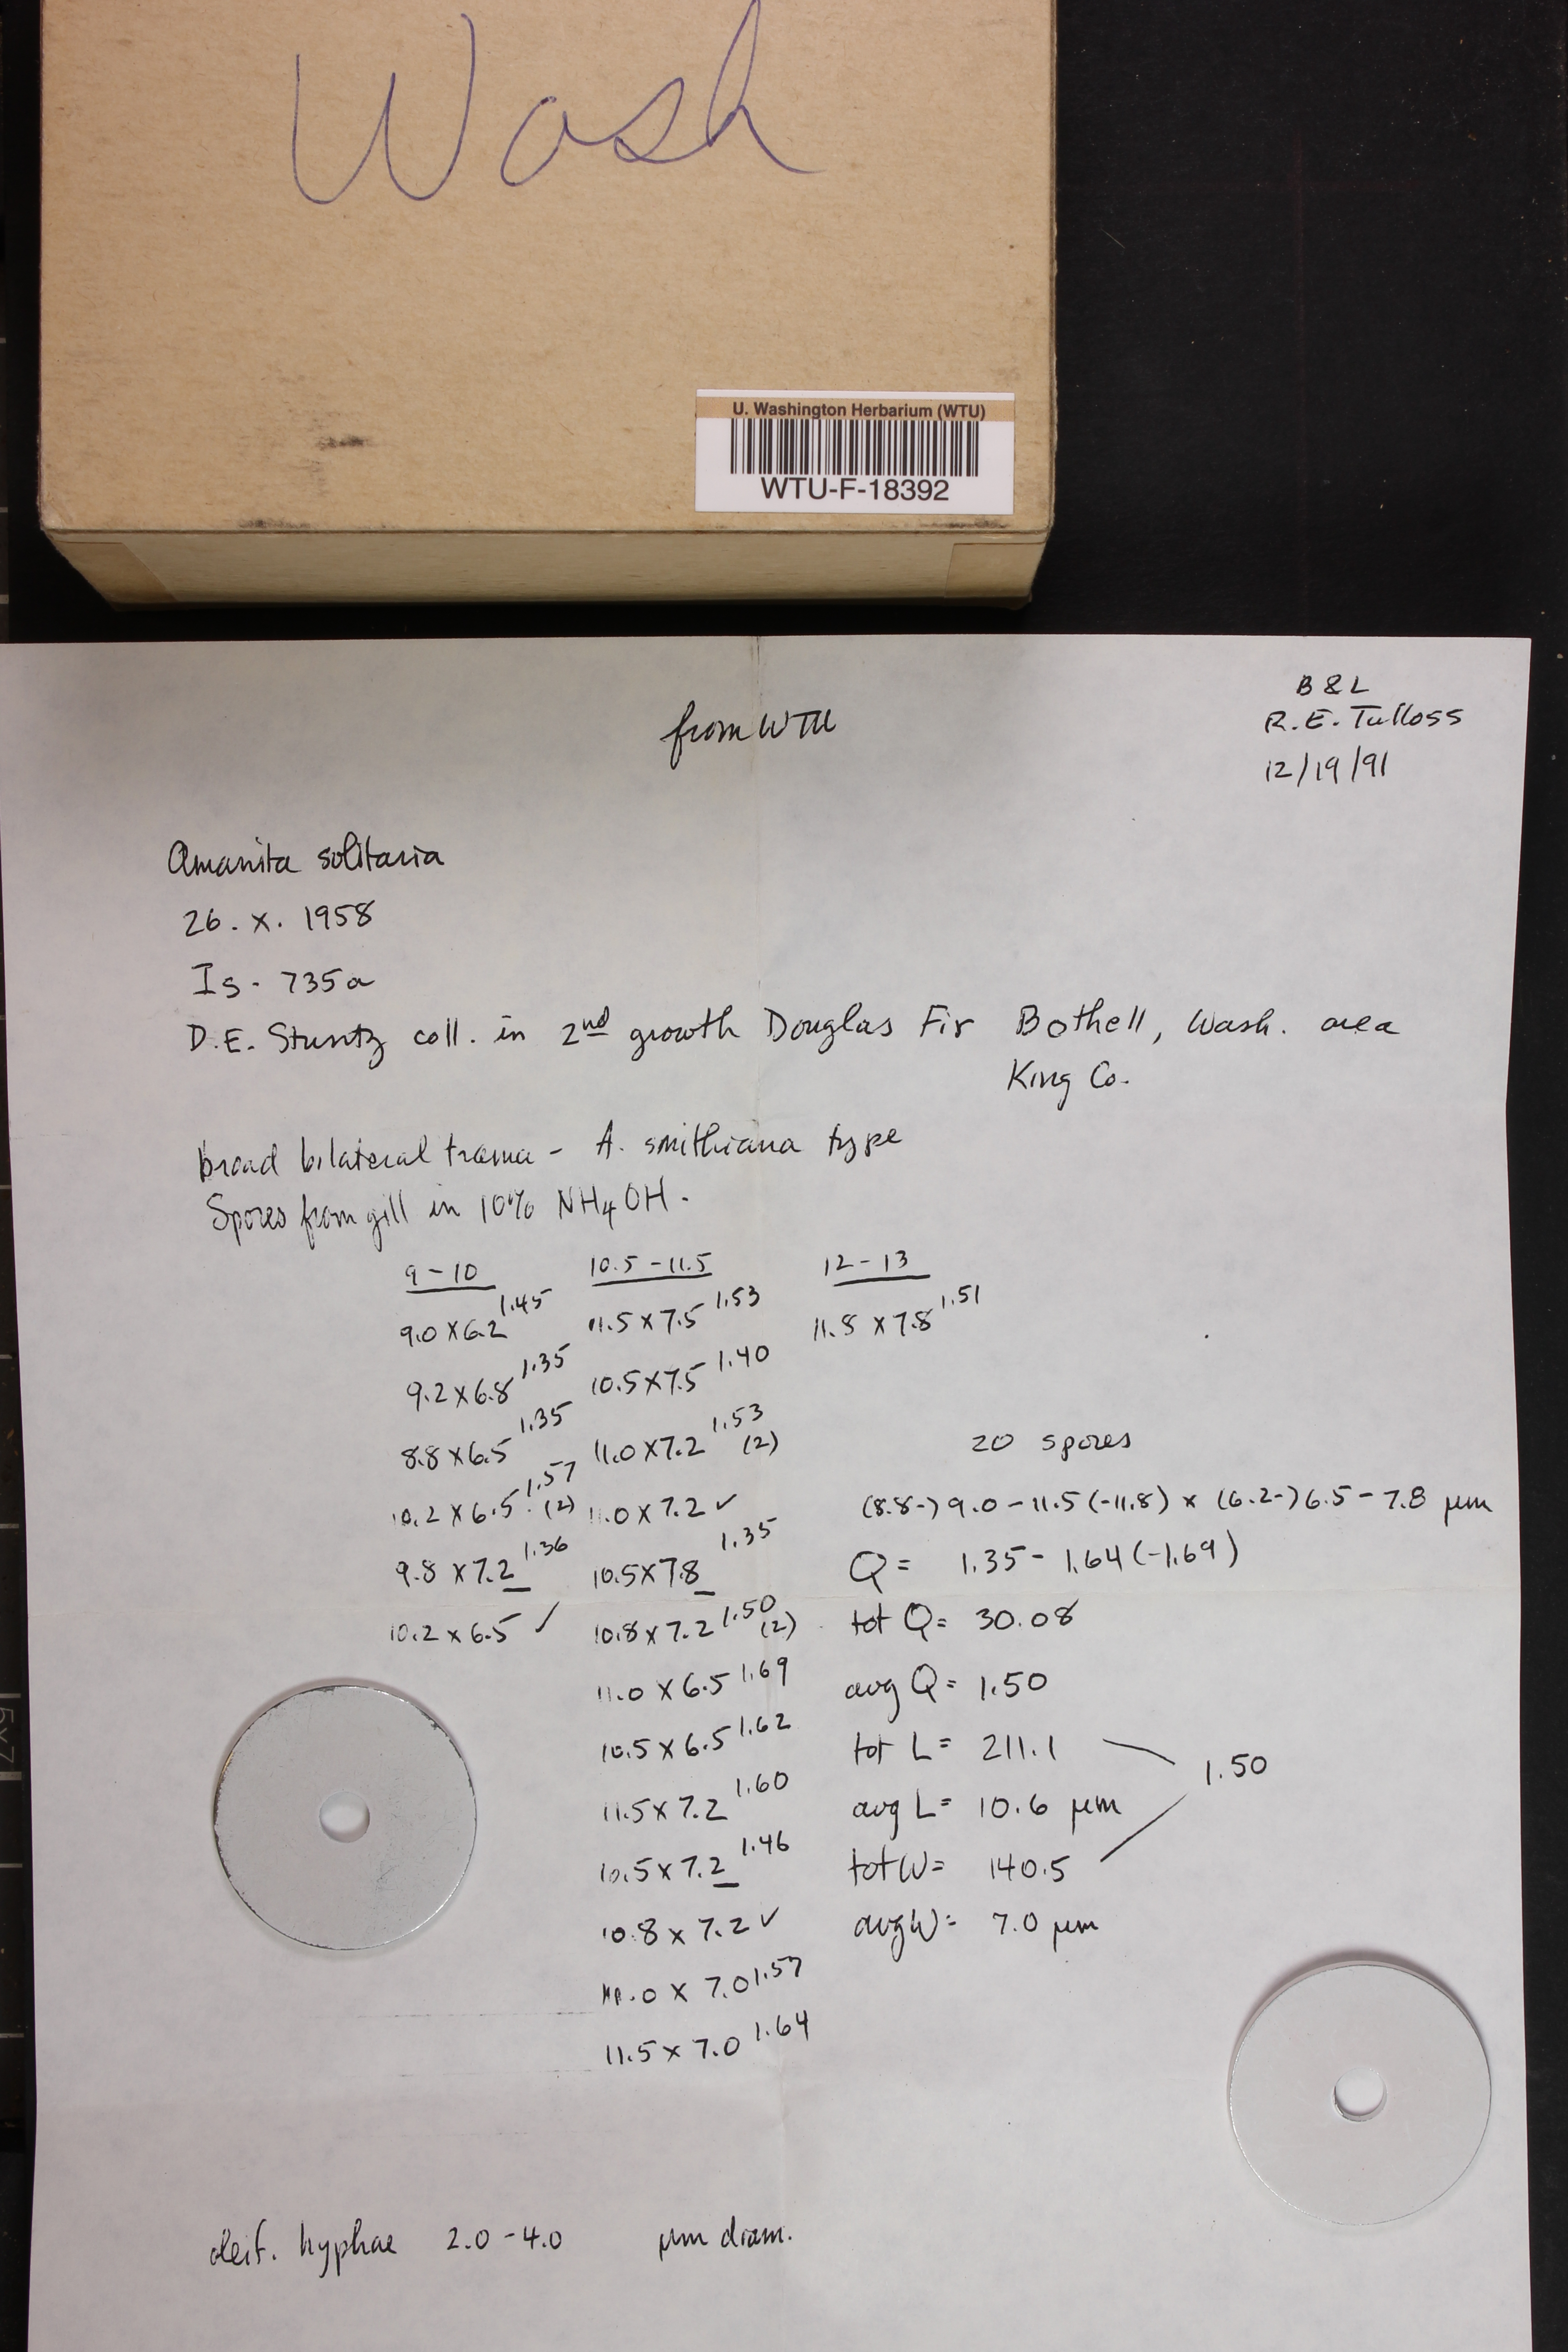 Wash
U. Washington Herbarium (WTU)
WTU-F-18392
B & L
R.E. Tulloss
12/19/91
from WTU
Amanita solitaria
26. x. 1958
Is - 735a
D.E. Stuntz coll. in 2nd growth Douglas Fir Bothell, Wash. area
King Co.
broad bilateral trama - A. smithiana type
Spores from gill in 10% NH4OH.
9-10 10.5-11.5 12-13
9.0 x 6.2 1.45 11.5 x 7.5 1.53 11.8 x 7.8 1.51
9.2 x 6.8 1.35 10.5 x 7.5 1.40
8.8 x 6.5 1.35 11.0 x 7.2 1.53 (2)
20 spores
10.2 x 6.5 1.57 (2) 11.0 x 7.2 ✓
(8.8-) 9.0 - 11.5 (-11.8) x (6.2-) 6.5 - 7.8 µm
9.8 x 7.2 1.36 10.5 x 7.8 1.35
Q = 1.35 - 1.64 (-1.69)
10.2 x 6.5 ✓ 10.8 x 7.2 1.50 (2)
tot Q = 30.08
11.0 x 6.5 1.69
avg Q = 1.50
10.5 x 6.5 1.62
tot L = 211.1
1.50
11.5 x 7.2 1.60
avg L = 10.6 µm
10.5 x 7.2 1.46
tot W = 140.5
10.8 x 7.2 ✓
avg W = 7.0 µm
.0 x 7.0 1.57
11.5 x 7.0 1.64
oleif. hyphae 2.0 - 4.0 µm diam.